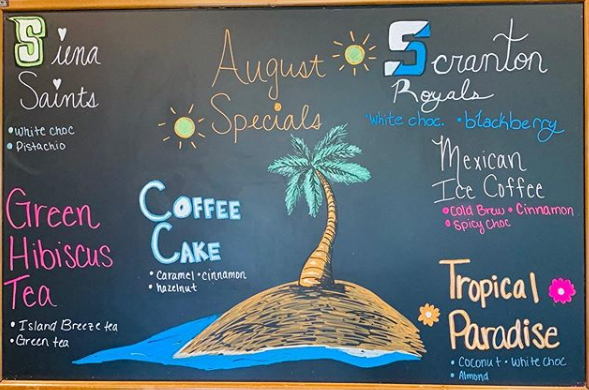 August
Specials
Siena
Saints
• White choc
• Pistachio
Green
Hibiscus
Tea
• Island Breeze tea
• Green tea
COFFEE
CAKE
• Caramel • cinnamon
• hazelnut
Scranton
Royals
• White choc. • blackberry
Mexican
Ice Coffee
• Cold Brew • Cinnamon
• Spicy Choc
Tropical
Paradise
• Coconut • White Choc
• Almond